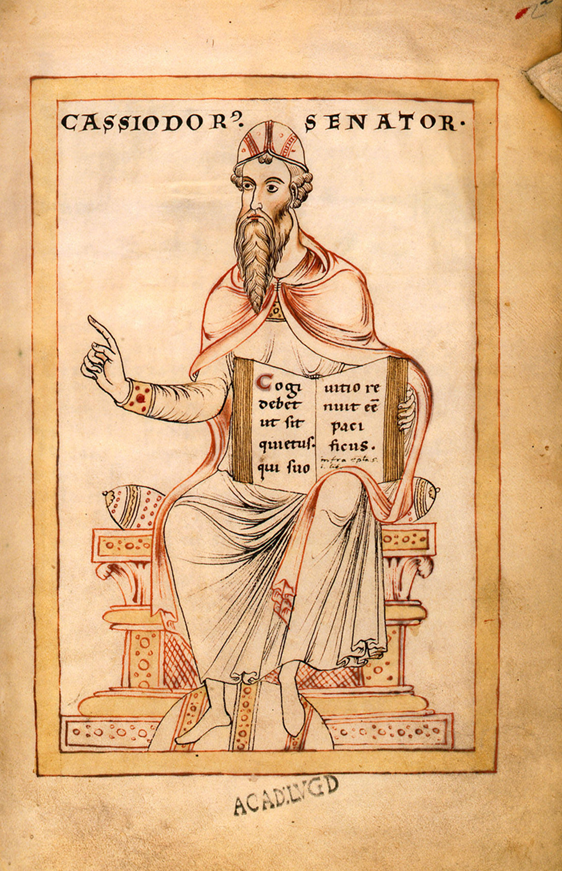 CASSIODORꝰ. SENATOR·
Cogi
debet
ut sit
quietus.
qui suo
uitio re
nuit eē
paci
ficus.
infra
ACAD. LVGD